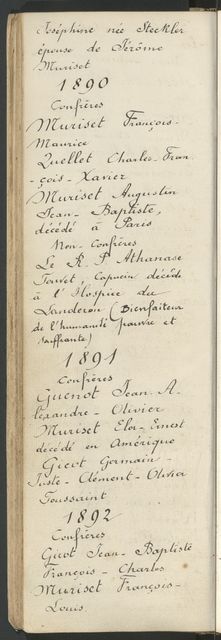 Joséphine née Steckler
épouse de Jérôme
Muriset
1890
Confrères
Muriset François-
Maurice
Quellet Charles-Fran
-çois-Xavier
Muriset Augustin
Jean-Baptiste,
décédé à Paris
Non-Confrères
Le R. P. Athanase
Jouvet, Capucin décédé
à l'Hospice du
Landeron (Bienfaiteur
de l'humanité pauvre et
souffrante)
1891
Confrères
Guenot Jean-A-
lexandre-Olivier
Muriset Eloi-Ernest
décédé en Amérique
Gicot Germain-
Juste-Clément-Olivier
Toussaint
1892
Confrères
Gicot Jean-Baptiste
François-Charles
Muriset François-
Louis